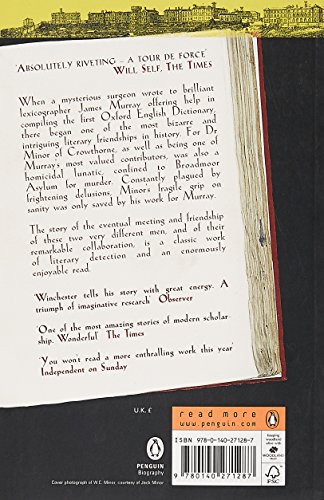 'ABSOLUTELY RIVETING – A TOUR DE FORCE'
WILL SELF, THE TIMES
When a mysterious surgeon wrote to brilliant
lexicographer James Murray offering help in
compiling the first Oxford English Dictionary,
there began one of the most bizarre and
intriguing literary friendships in history. For Dr
Minor of Crowthorne, as well as being one of
Murray's most valued contributors, was also a
homicidal lunatic, confined to Broadmoor
Asylum for murder. Constantly plagued by
frightening delusions, Minor's fragile grip on
sanity was only saved by his work for Murray.
The story of the eventual meeting and friendship
of these two very different men, and of their
remarkable collaboration, is a classic work
of literary detection and an enormously
enjoyable read.
'Winchester tells his story with great energy. A
triumph of imaginative research' Observer
'One of the most amazing stories of modern scholar-
ship. Wonderful' The Times
'You won't read a more enthralling work this year'
Independent on Sunday
U.K. £
PENGUIN
Biography
Cover photograph of W.C. Minor, courtesy of Jack Minor
read more
www.penguin.com
ISBN 978-0-140-27128-7
9 780140 271287
WOODLAND
FSC